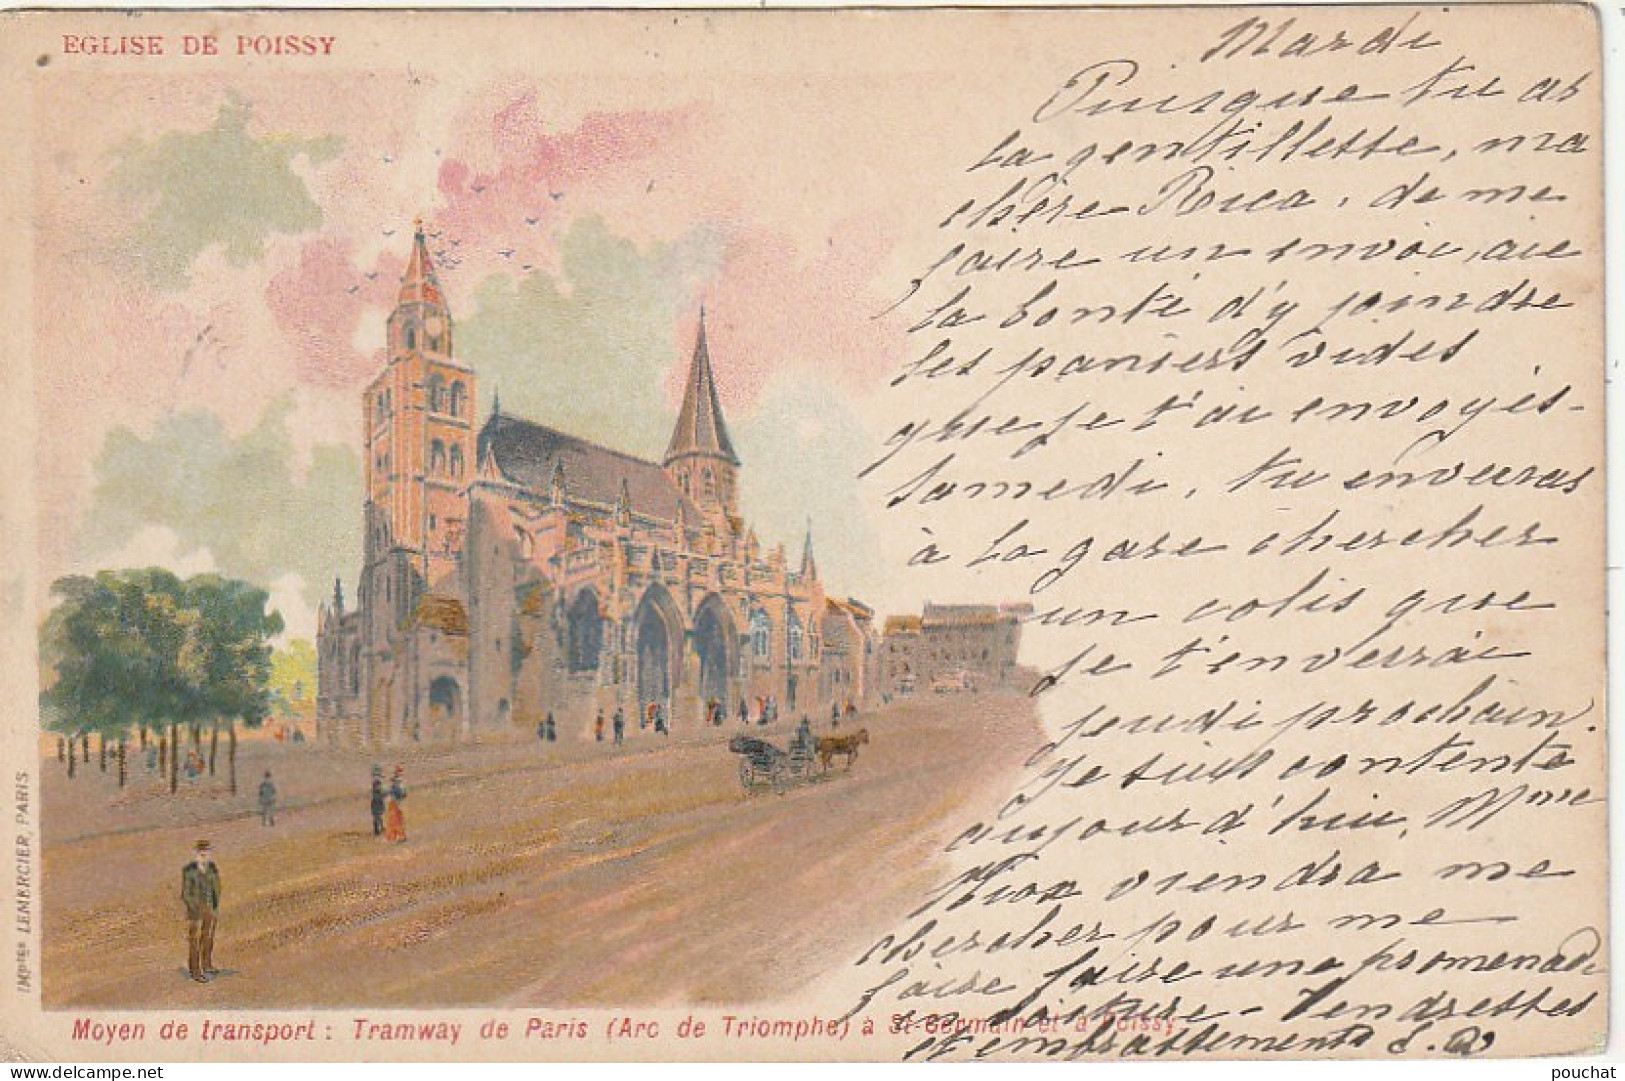 EGLISE DE POISSY
Mardi
Puisque tu as
la gentillesse, ma
chère Rica, de me
faire un envoi, aie
la bonté d'y joindre
les paniers vides
que je t'ai envoyés
samedi, tu enverras
à la gare chercher
un colis que
je t'enverrai
jeudi prochain.
Je suis contente
aujourd'hui, Mme
viendra me
chercher pour me
faire faire une promenade
en voiture - Tendresses
et embrassements
Moyen de transport : Tramway de Paris (Arc de Triomphe) à St-Germain et à Poissy
IMPies LEMERCIER, PARIS
pouchat